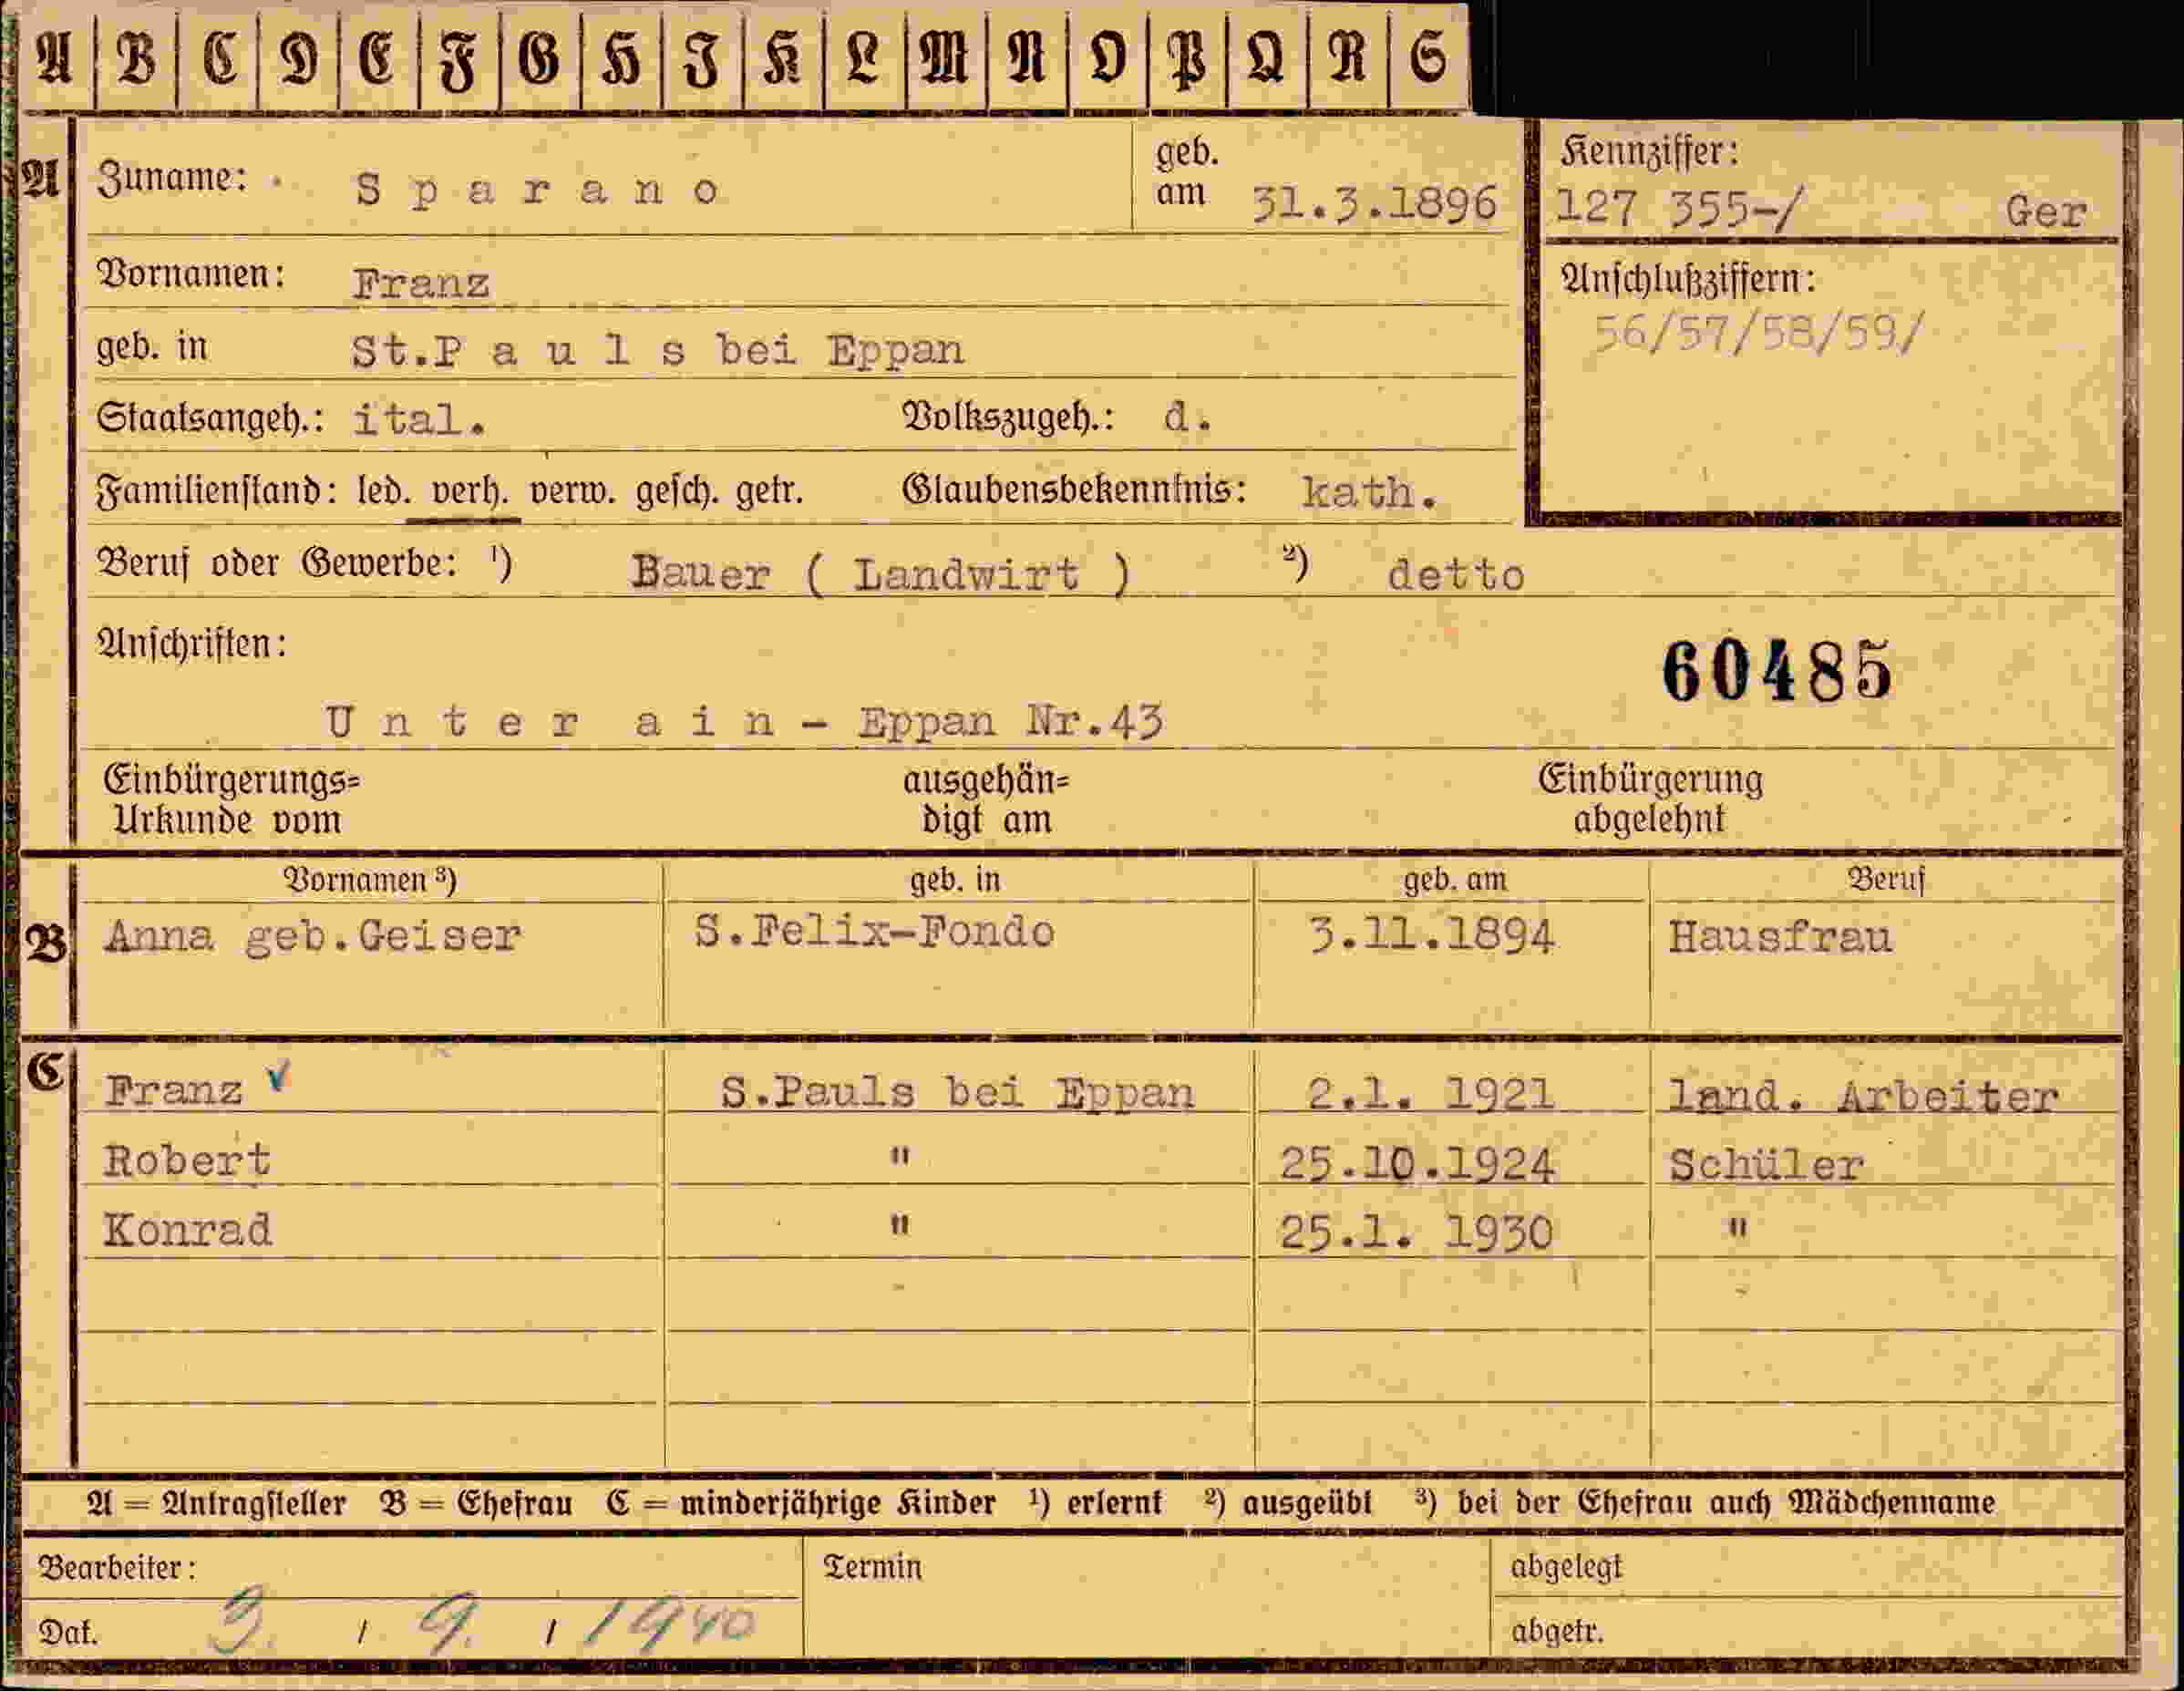 A B C D E F G H I K L M N O P Q R S
A Zuname: Sparano geb. am 31.3.1896 Kennziffer: 127 355-/ Ger
Vornamen: Franz Anschlußziffern:
56/57/58/59/
geb. in St.Pauls bei Eppan
Staatsangeh.: ital. Volkszugeh.: d.
Familienstand: led. verh. verw. gesch. getr. Glaubensbekenntnis: kath.
Beruf oder Gewerbe: ¹) Bauer ( Landwirt ) ²) detto
Anschriften:
60485
Unter ain - Eppan Nr.43
Einbürgerungs= ausgehän= Einbürgerung
Urkunde vom digt am abgelehnt
Vornamen ³) geb. in geb. am Beruf
B Anna geb.Geiser S.Felix-Fondo 3.11.1894 Hausfrau
C Franz ✓ S.Pauls bei Eppan 2.1. 1921 land. Arbeiter
Robert " 25.10.1924 Schüler
Konrad " 25.1. 1930 "
A = Antragsteller B = Ehefrau C = minderjährige Kinder ¹) erlernt ²) ausgeübt ³) bei der Ehefrau auch Mädchenname
Bearbeiter: Termin abgelegt
Dat. 3. / 9. / 1940 abgetr.